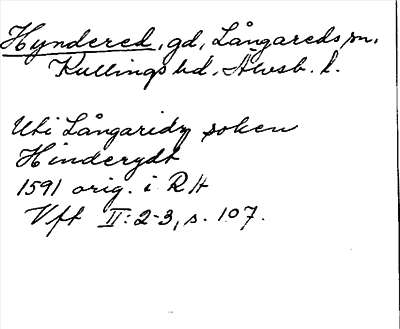 Hyndered, gd, Långareds sn.
Kullings hd. Älvsb. l.
Uti Långaridz soken
Hinderydt
1591 orig. i RA
Vfft II: 2-3, s. 107.